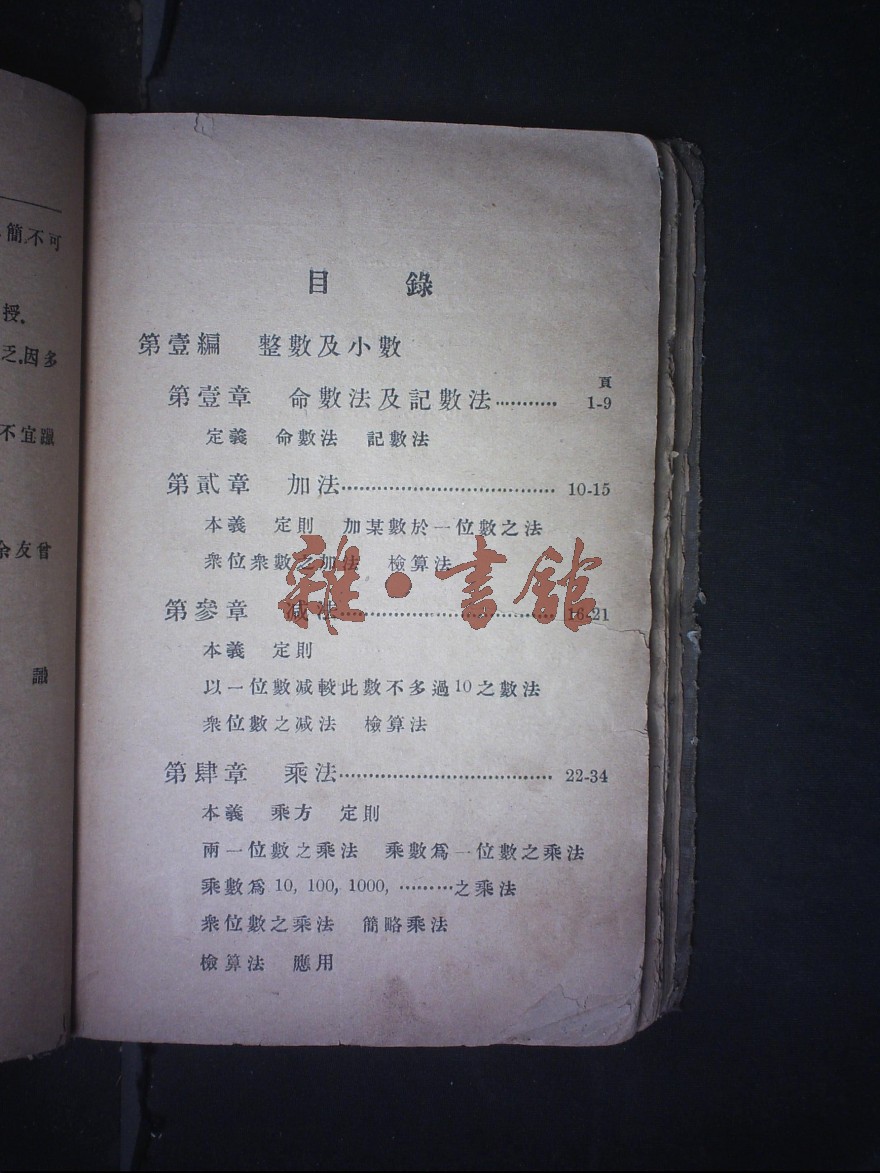 簡不可
授.
乏,因多
不宜躐
余友曾
識
目錄
第壹編 整數及小數
頁
第壹章 命數法及記數法………… 1-9
定義 命數法 記數法
第貳章 加法………………………………… 10-15
本義 定則 加某數於一位數之法
衆位衆數之加法 檢算法
雜·書館
第參章 減法………………………………… 16-21
本義 定則
以一位數減較此數不多過10之數法
衆位數之減法 檢算法
第肆章 乘法………………………………… 22-34
本義 乘方 定則
兩一位數之乘法 乘數爲一位數之乘法
乘數爲10, 100, 1000, ………之乘法
衆位數之乘法 簡略乘法
檢算法 應用